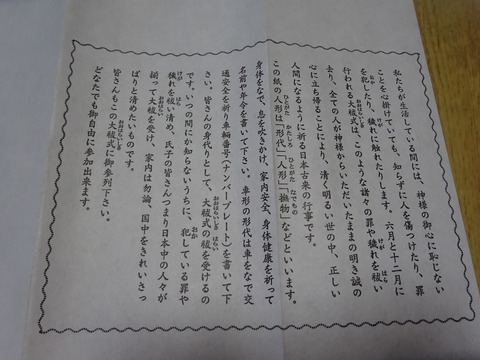 私たちが生活している間には、神様の御心に恥じない
ことを心掛けていても、知らずに人を傷つけたり、罪
を犯したり、穢れに触れたりします。六月と十二月に
行われる大祓式は、このような諸々の罪や穢れを祓い
去り、全ての人が神様からいただいたままの明き誠の
心に立ち帰ることにより、清く明るい世の中、正しい
人間になるように祈る日本古来の行事です。
この紙の人形は「形代」「人形」「撫物」などといいます。
身体をなで、息を吹きかけ、家内安全、身体健康を祈って
名前や年令を書いて下さい。車形の形代は車をなで交
通安全を祈り車輌番号(ナンバープレート)を書いて下
さい。皆さんの身代りとして、大祓式の祓を受けるの
です。いつの間にか知らないうちに、犯している罪や
穢れを祓い清め、氏子の皆さんつまり日本中の人々が
揃って大祓を受け、家内は勿論、国中をきれいさっ
ぱりと清めたいものです。
皆さんもこの大祓式に御参列下さい。
どなたでも御自由に参加出来ます。